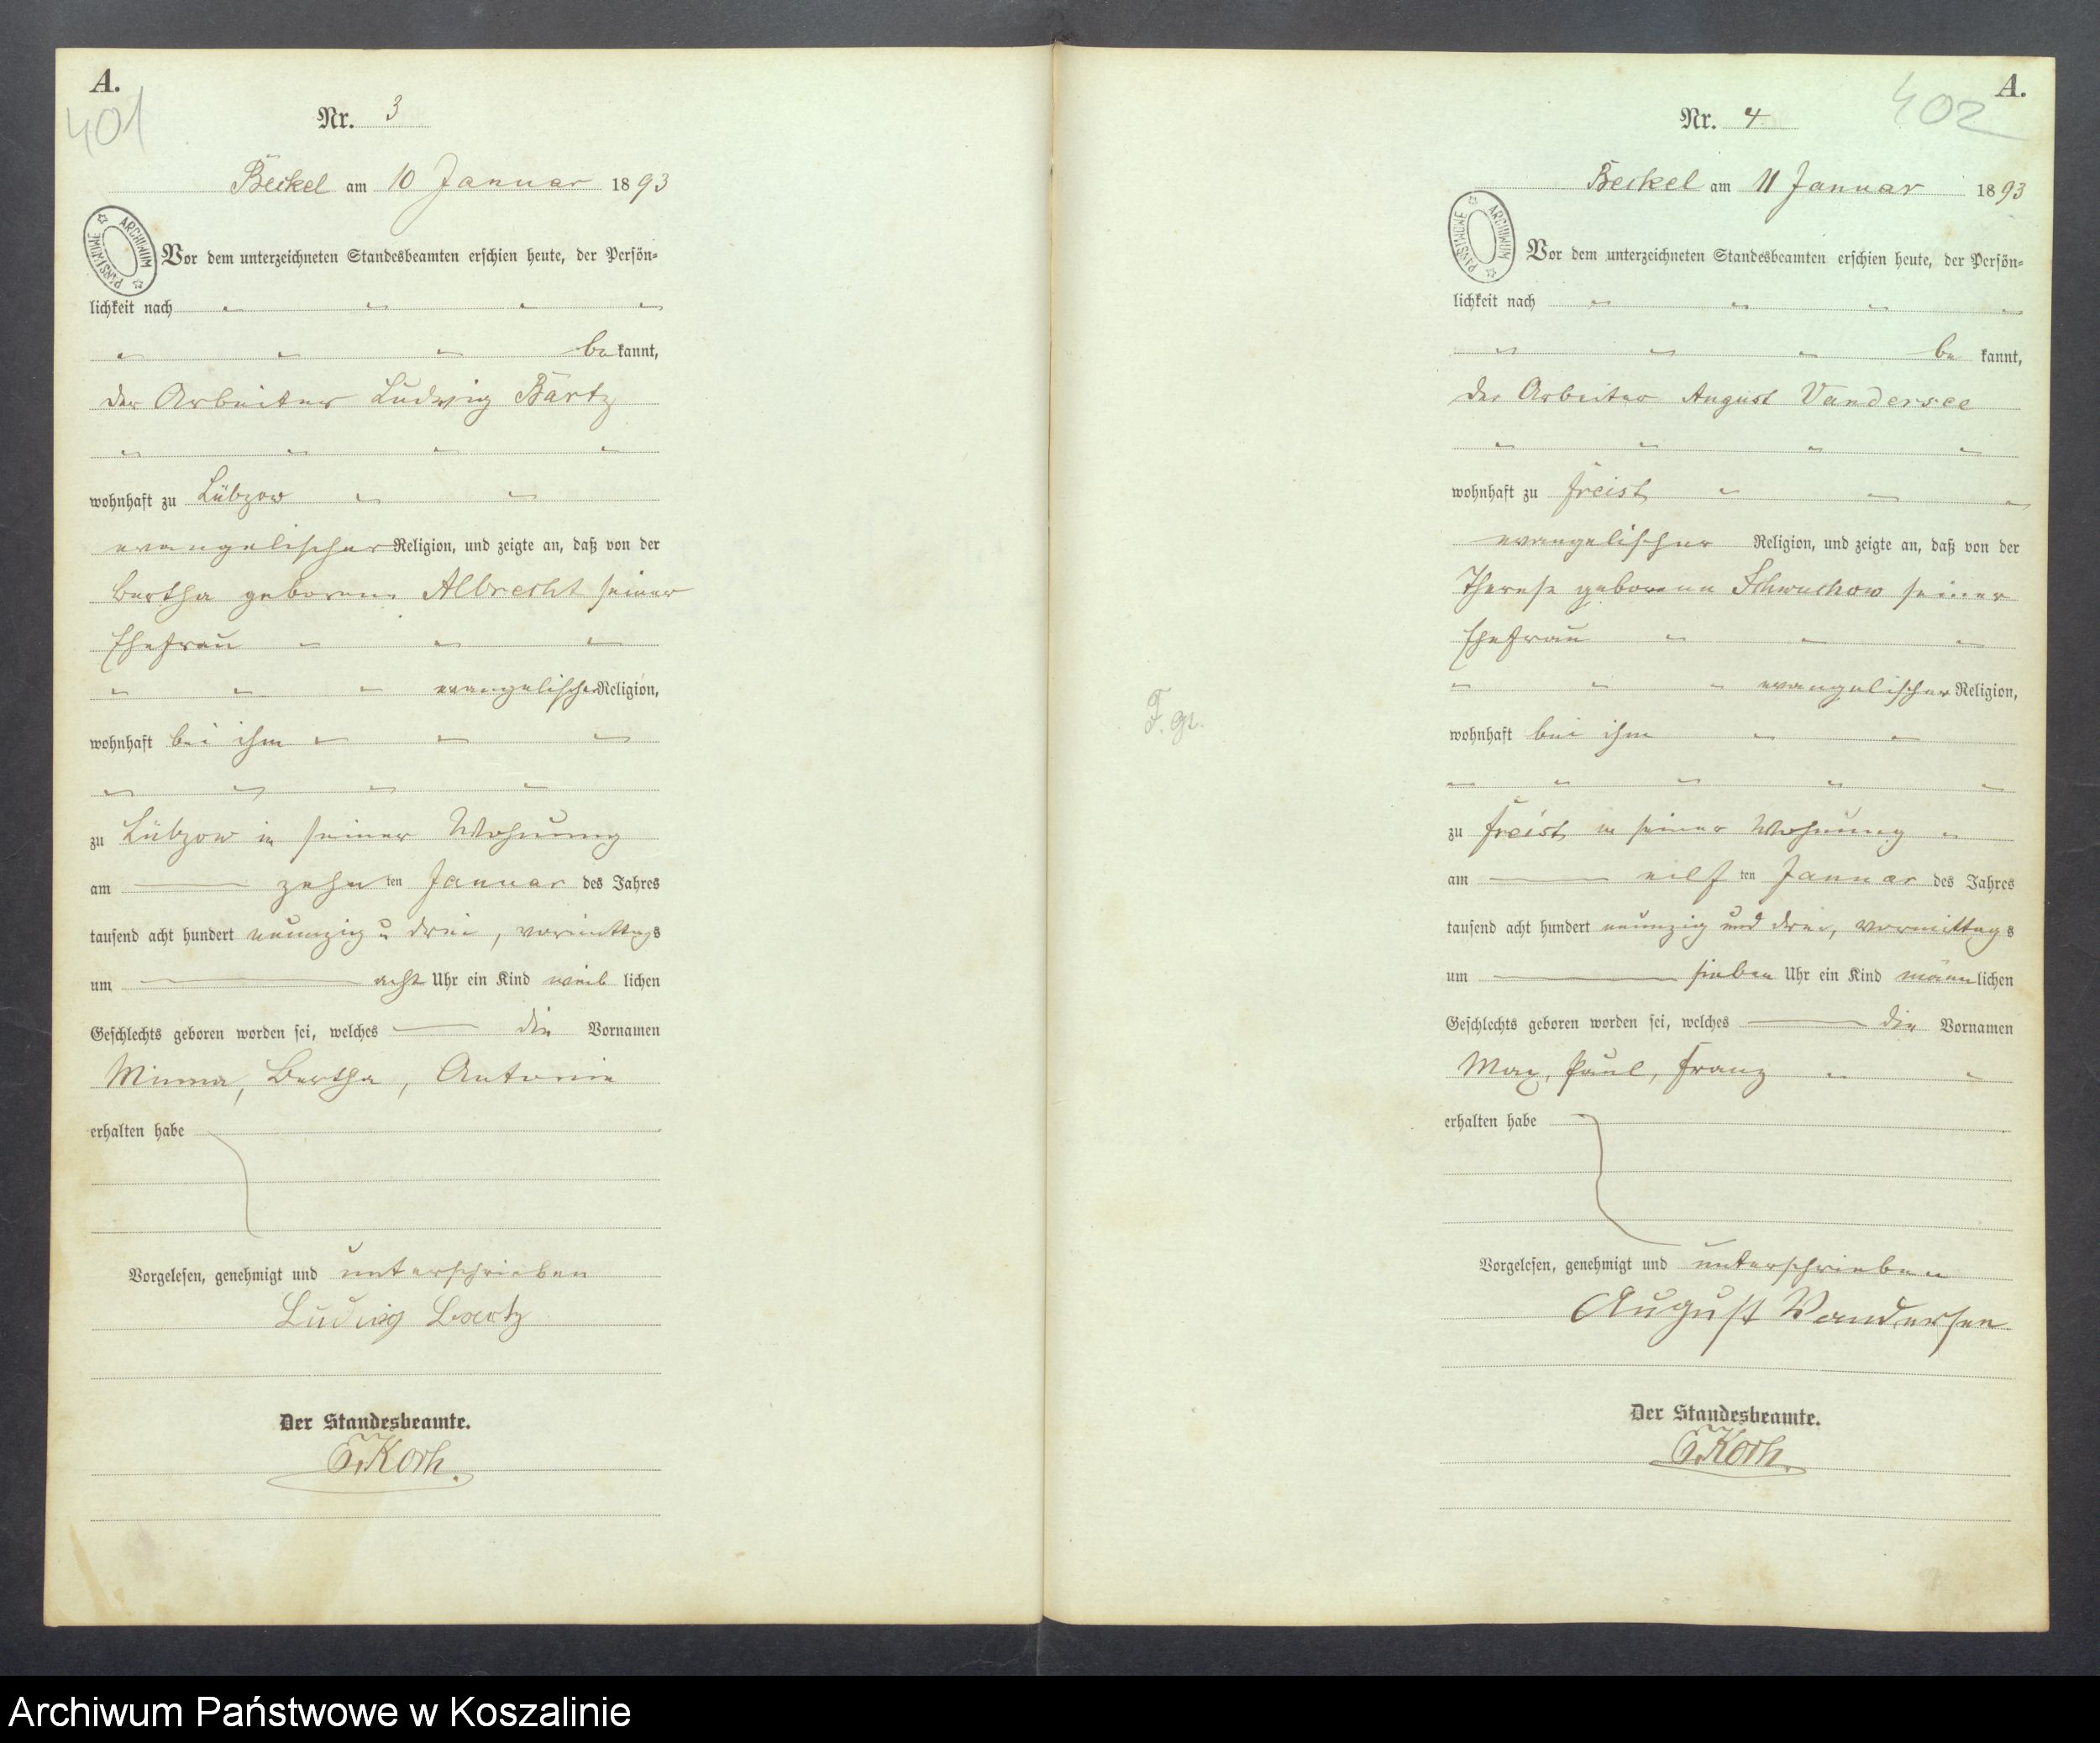 A.
401
Nr. 3
Beckel am 10 Januar 1893
ARCHIWUM PAŃSTWOWE
Vor dem unterzeichneten Standesbeamten erschien heute, der Persön-
lichkeit nach
bekannt,
der Arbeiter Ludwig Bartz
wohnhaft zu Lübzow
evangelischer Religion, und zeigte an, daß von der
Bertha geborene Albrecht seiner
Ehefrau
evangelischer Religion,
wohnhaft bei ihm
zu Lübzow in seiner Wohnung
am zehnten Januar des Jahres
tausend acht hundert neunzig u drei, vormittags
um acht Uhr ein Kind weiblichen
Geschlechts geboren worden sei, welches die Vornamen
Minna, Bertha, Antonie
erhalten habe
Vorgelesen, genehmigt und unterschrieben
Ludwig Bartz
Der Standesbeamte.
A.
402
Nr. 4
Beckel am 11 Januar 1893
ARCHIWUM PAŃSTWOWE
Vor dem unterzeichneten Standesbeamten erschien heute, der Persön-
lichkeit nach
bekannt,
der Arbeiter August Vandersee
wohnhaft zu Freist
evangelischer Religion, und zeigte an, daß von der
Therese geborene Schwuchow seiner
Ehefrau
evangelischer Religion,
wohnhaft bei ihm
zu Freist in seiner Wohnung
am eilften Januar des Jahres
tausend acht hundert neunzig und drei, vormittags
um sieben Uhr ein Kind männlichen
Geschlechts geboren worden sei, welches die Vornamen
Max, Paul, Franz
erhalten habe
Vorgelesen, genehmigt und unterschrieben
August Vandersee
Der Standesbeamte.
Archiwum Państwowe w Koszalinie